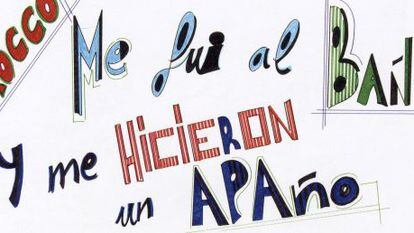 OCCO
Me fui al BAÑ
y me HICIeRON
un APAño